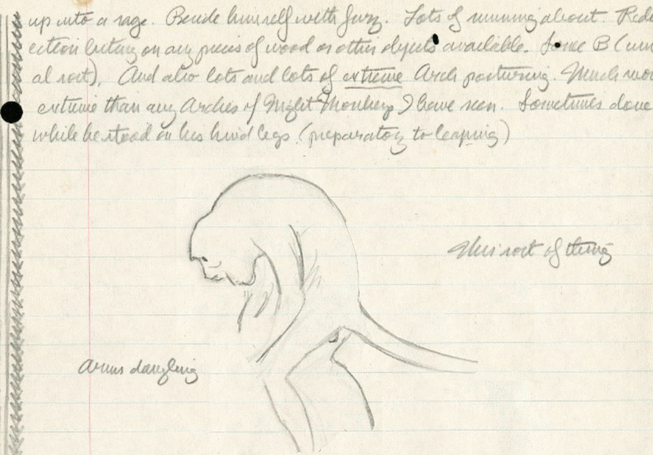 up into a rage. Beside himself with fury. Lots of running about. Redi
ection biting on any pieces of wood or other objects available. Some B (usu
al sort). And also lots and lots of extreme Arch posturing. Much more
extreme than any Arches of Night Monkeys I have seen. Sometimes done
while he stood on his hind legs (preparatory to leaping)
This sort of thing
Arms dangling